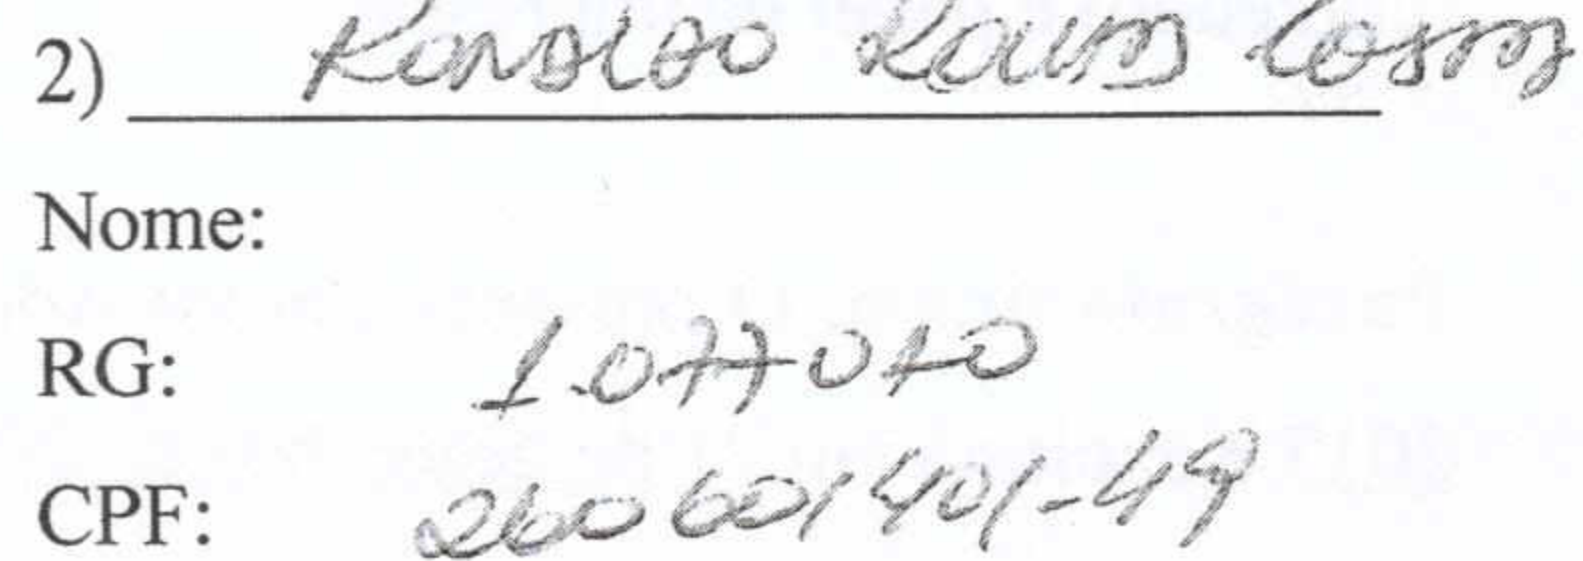 2) Ronaldo Costa
Nome:
RG: 1.077070
CPF: 260601401-49